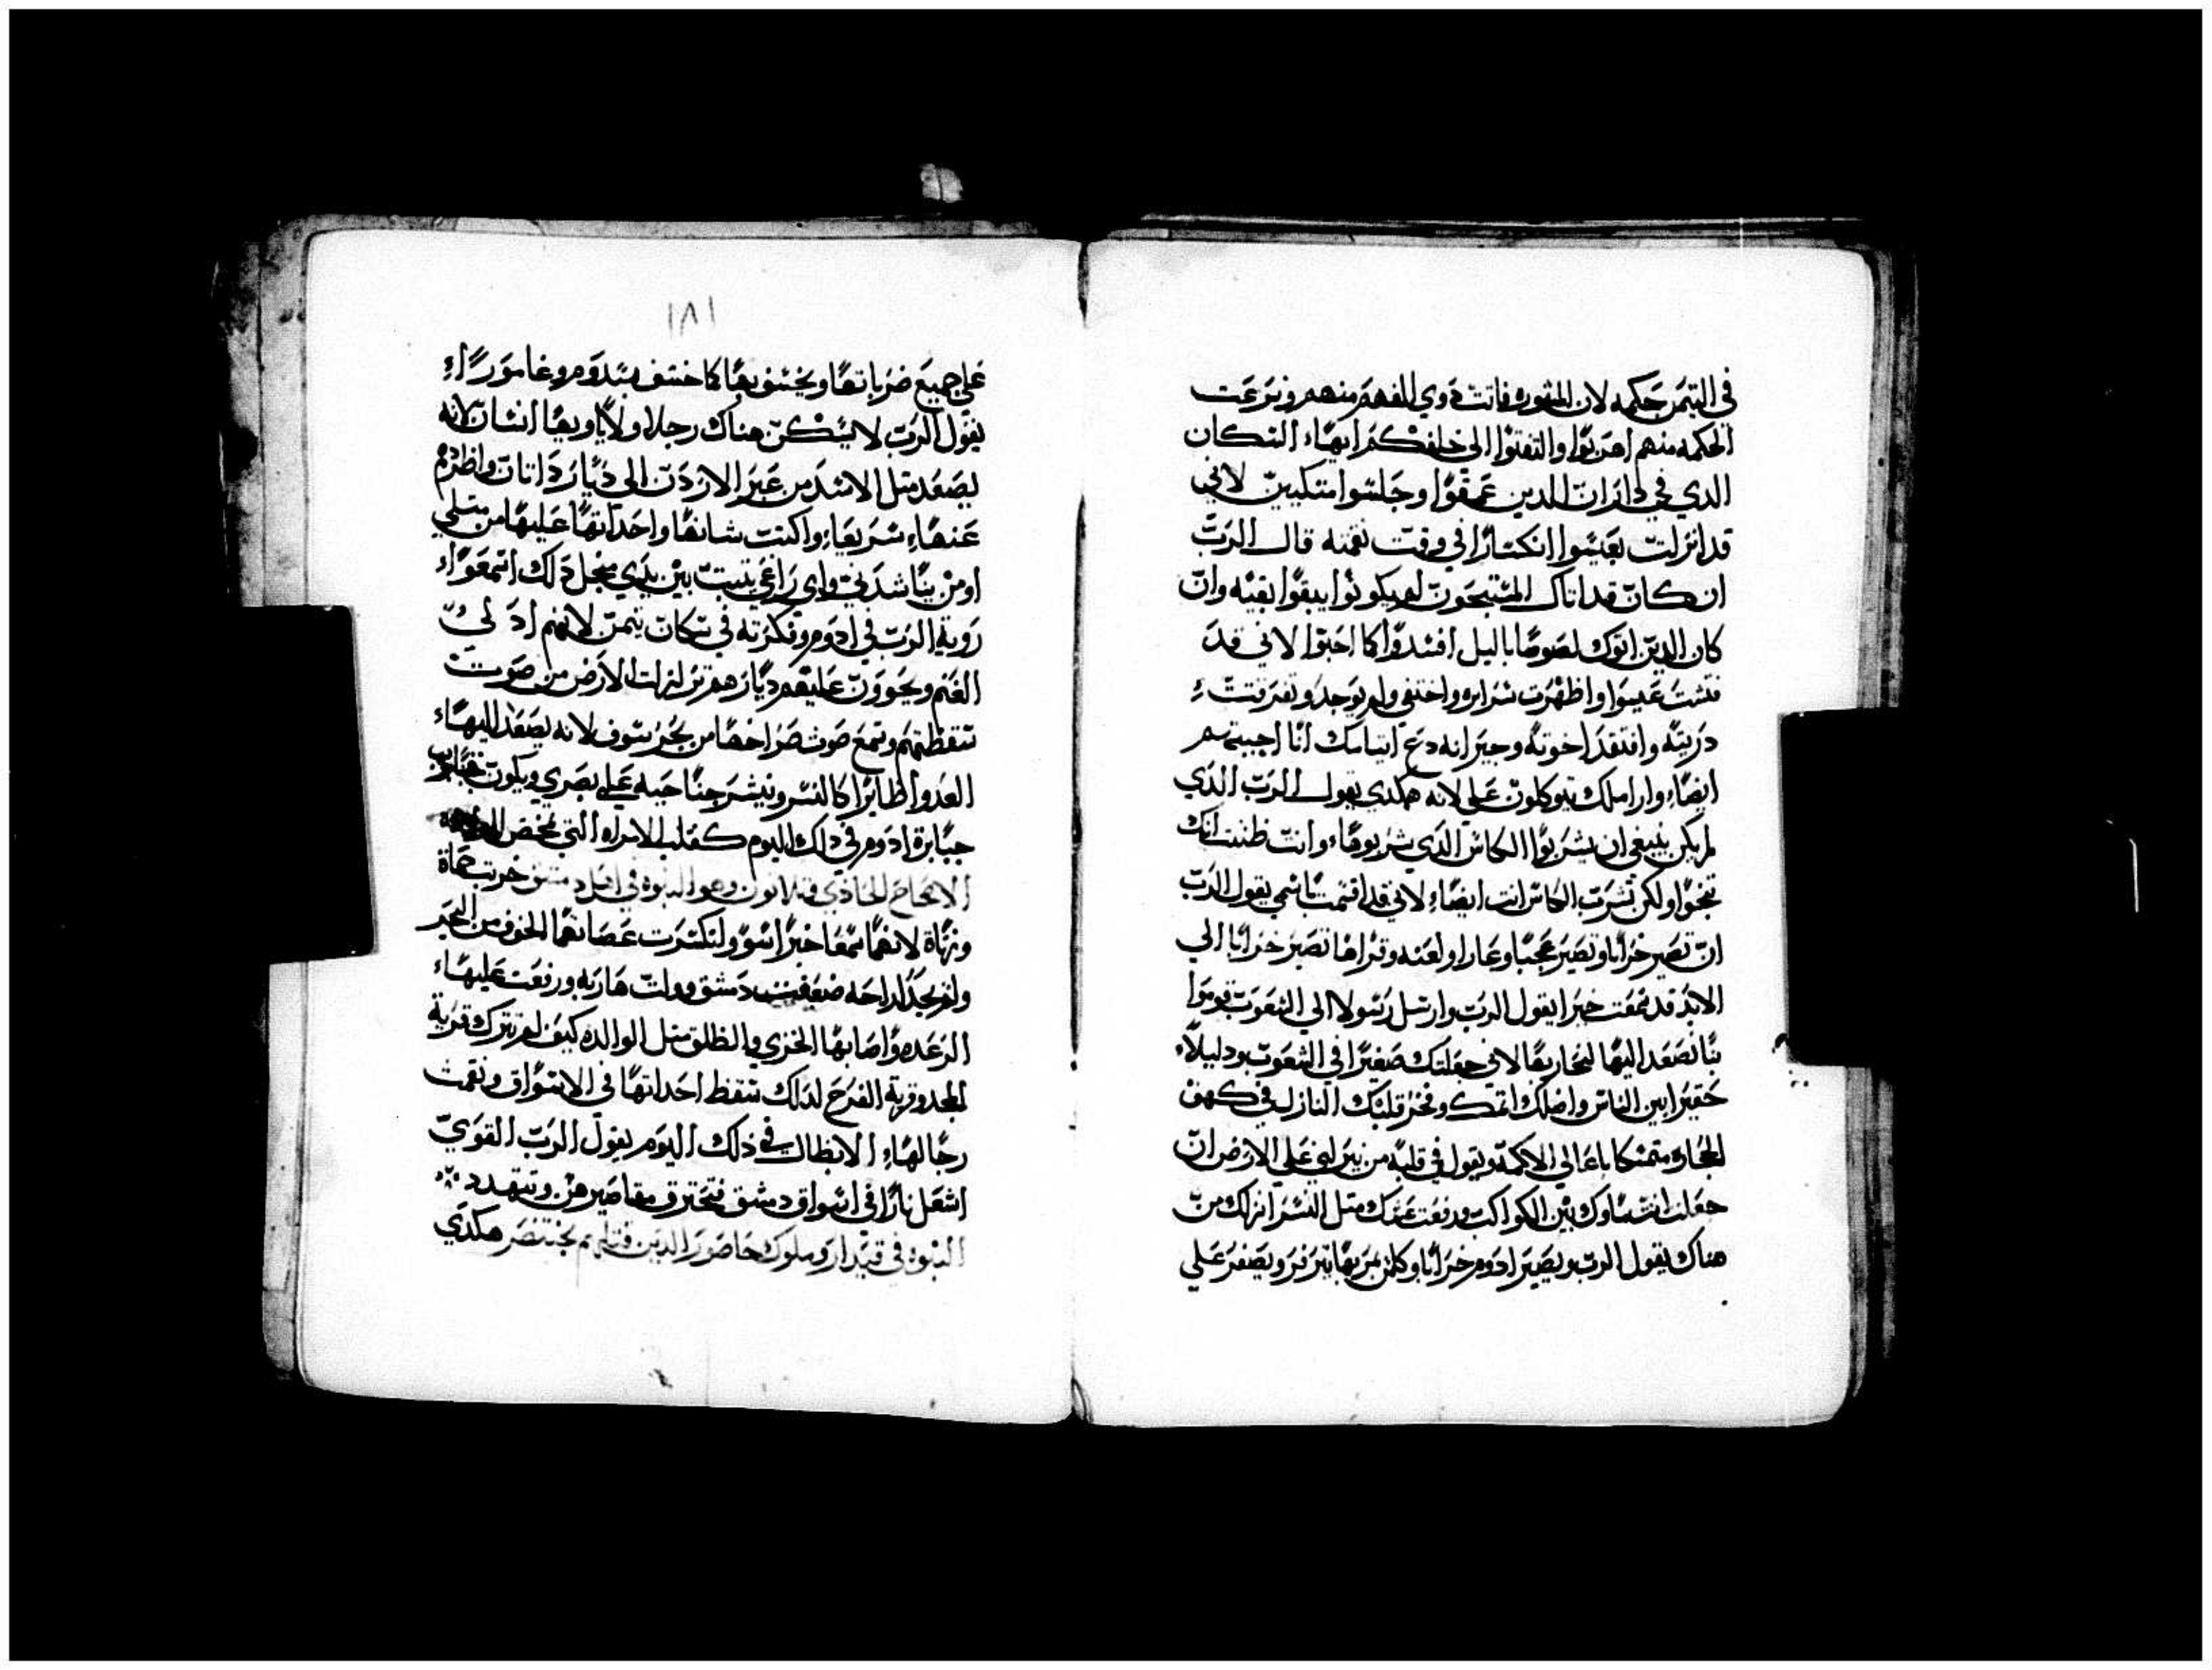 في التيمن حكمه لان المشوره فاتت ذوي الفهم منهم ونزعت
الحكمه منهم اهربوا والتفتوا الى خلفكم ايها السكان
الدي في دارات الدين عمقوا وجلسوا متكيين لاني
قد انزلت بعيسوا انكسارا في وقت نقمته قال الرب
ان كان قد اتاك المستبحون لم يكونوا يبقوا بقيه وان
كان الدين اتوك لصوصا باليل افسدوا كما احبوا لاني قد
فتشت عيسوا واظهرت سرايره واختفى ولم يوجد وتفرقت
دريته وافتقد اخوته وجيرانه دع ايتامك انا احييهم
ايضا واراملك يتوكلون علي لانه هكدي يقول الرب الدي
لم يكن ينبغي ان يشربوا الكاس الدي شربوها وانت ظننت انك
تنجوا ولكن تشرب الكاس انت ايضا لاني قد اقسمت باسمي يقول الرب
ان تصير خرابا وتصير عجبا وعارا ولعنه وقراها تصير خرابا الي
الابد قد سمعت خبرا يقول الرب وارسل رسولا الي الشعوب قوموا
بنا نصعد اليها لنحاربها لاني جعلتك صغيرا في الشعوب ودليلا
حقيرا بين الناس واضلك اتمك وفخر قلبك النازل في كهف
الحجاره متمسكا باعالي الاكمه ويقول في قلبه من ينزلني علي الارض ان
جعلت انت ماوك بين الكواكب ورفعت عشك متل النسر انزلك من
هناك يقول الرب ويصير ادوم خرابا وكلمن يمر بها يتزفر ويصفر علي
١٨١
علي جميع ضرباتها ويخسف بها كما خسف بسدوم وغامورا
يقول الرب لا يسكن هناك رجلا ولا ياويها انسان لانه
يصعد متل الاسد من عبر الاردن الى ديار داتان واطردهم
عنها سريعا واكنت شانها واحداتها عليها من متلي
او من يناشدني واي راعي يتبت بين يدي منجل دلك اسمعوا
روية الرب في ادوم وفكرته في سكان تيمن لانهم ادلي
الغنم ويحوون عليهم ديارهم تزلزلت الارض من صوت
سقطتهم وسمع صوت صراخها من بحر سوف لانه يصعد اليها
العدوا طايرا كالنسر وينشر جناحيه علي بصري ويكون
جبابرة ادوم في دلك اليوم كقلب الامراه التي تمخض
الاصحاح الحادي وهو النبوه في اهل دمشق خربت حماة
ونهاة لانهما سمعا خبرا اسوو لنكسرت عصاتهما الخوف من البحر
ولم يجدا راحه ضعفت دمشق وولت هاربه ورفعت عليها
الرعده واصابها الخزي والطلق متل الوالده كيف لم تترك قرية
المجد وقرية الفرح لدلك تسقط احداتها في الاسواق وتقمت
رجالها الابطال في ذلك اليوم يقول الرب القوي
اشعل نارا في اسواق دمشق فتحترق مقاصيرهن وتتهدد
النبوه في قيدار وملوك حاصور الدين قتلهم بختنصر هكدي